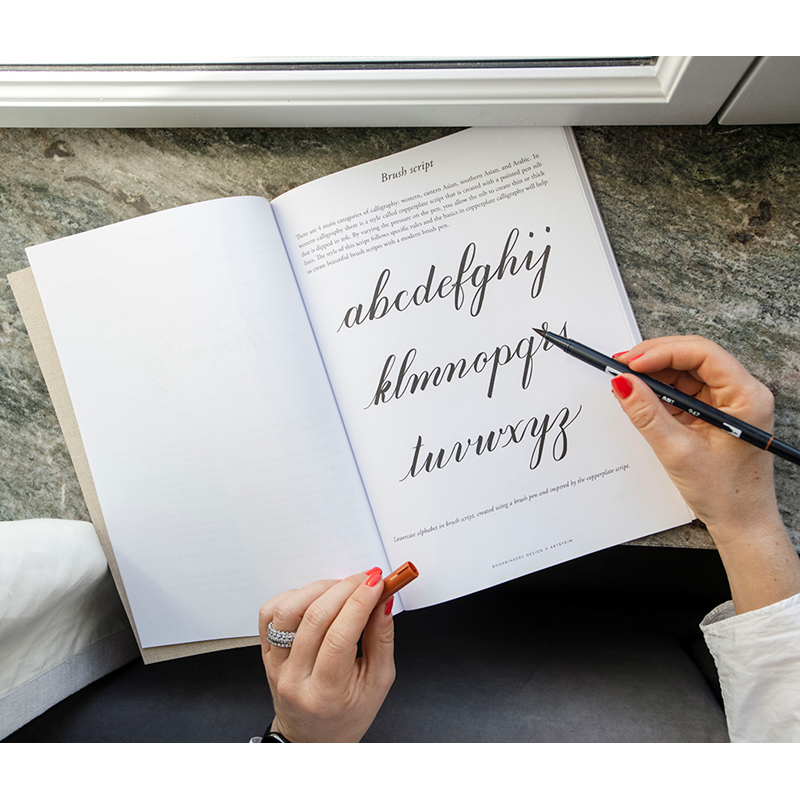 Brush script
There are 4 main categories of calligraphy: western, eastern Asian, southern Asian, and Arabic. In
western calligraphy there is a style called copperplate script that is created with a pointed pen nib
that is dipped in ink. By varying the pressure on the pen, you allow the nib to create thin or thick
lines. The style of this script follows specific rules and the basics in copperplate calligraphy will help
to create beautiful brush scripts with a modern brush pen.
abcdefghij
klmnopqrs
tuvwxyz
Lowercase alphabet in brush script, created using a brush pen and inspired by the copperplate script.
BOOKBINDERS DESIGN X ARTÉRIM
947